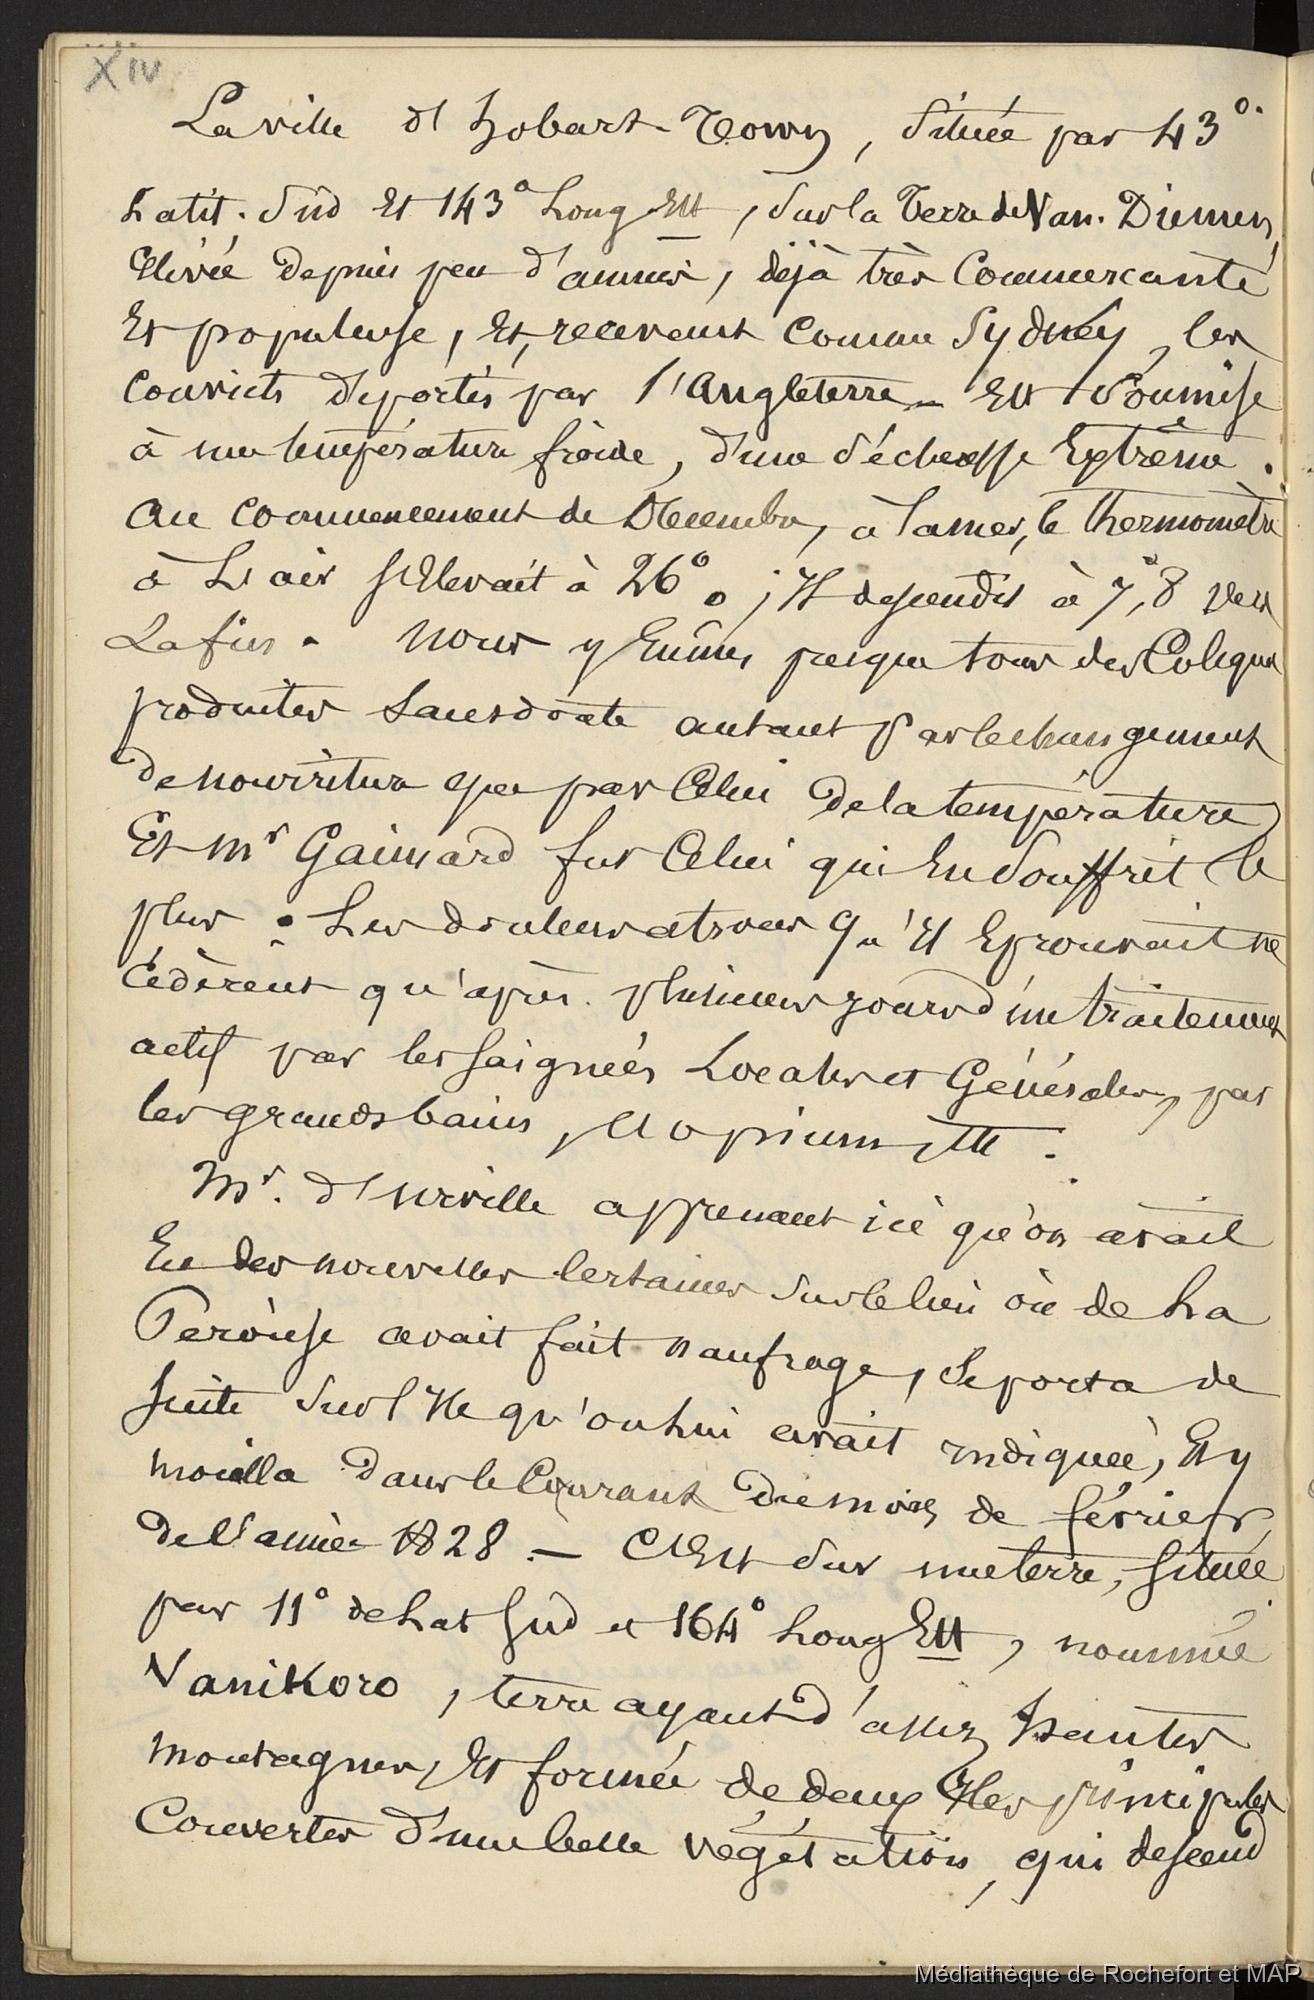 XIV
La ville d'hobart-Town, située par 43°.
Latit. Sud Et 143° Long Est, Sur la Terre de Van. Diemen,
Elévée depuis peu d'années, déjà très Commerçante
Et populeuse, Et, recevant Comme Sydney, les
Convicts déportés par l'angleterre - Est Soumise
à une température froide, d'une sécheresse Extrême.
au commencement de Décembre, à la mer, le thermomètre
à L'air s'Elevait à 26° ; Il descendit à 7°,8 vers
La fin. Nous y Eumes presque tous des Coliques
produites sans doute autant par le changement
de nourriture que par Celui de la température,
Et Mr Gaimard fut Celui qui En Souffrit le
plus. Les douleurs atroces qu'Il Eprouvait ne
cédèrent qu'après plusieurs jours d'un traitement
actif par les saignées Locales et Générales, par
les grands bains, l'opium, Etc.
Mr. d'urville apprenant ici qu'on avait
Eu des nouvelles Certaines Sur le lieu où de La
Peròuse avait fait naufrage, Se porta de
suite Sur l'Ile qu'on lui avait indiqueé, Et y
mouilla dans le Courant du mois de février,
de l'année 1828. — C'Est Sur une terre, située
par 11° de Lat Sud et 164° Long Est, nommée
Vanikoro, terre ayant d'assez hautes
montagnes, Et formée de deux Iles principales
Couvertes d'une belle végétation, qui descend
Médiathèque de Rochefort et MAP